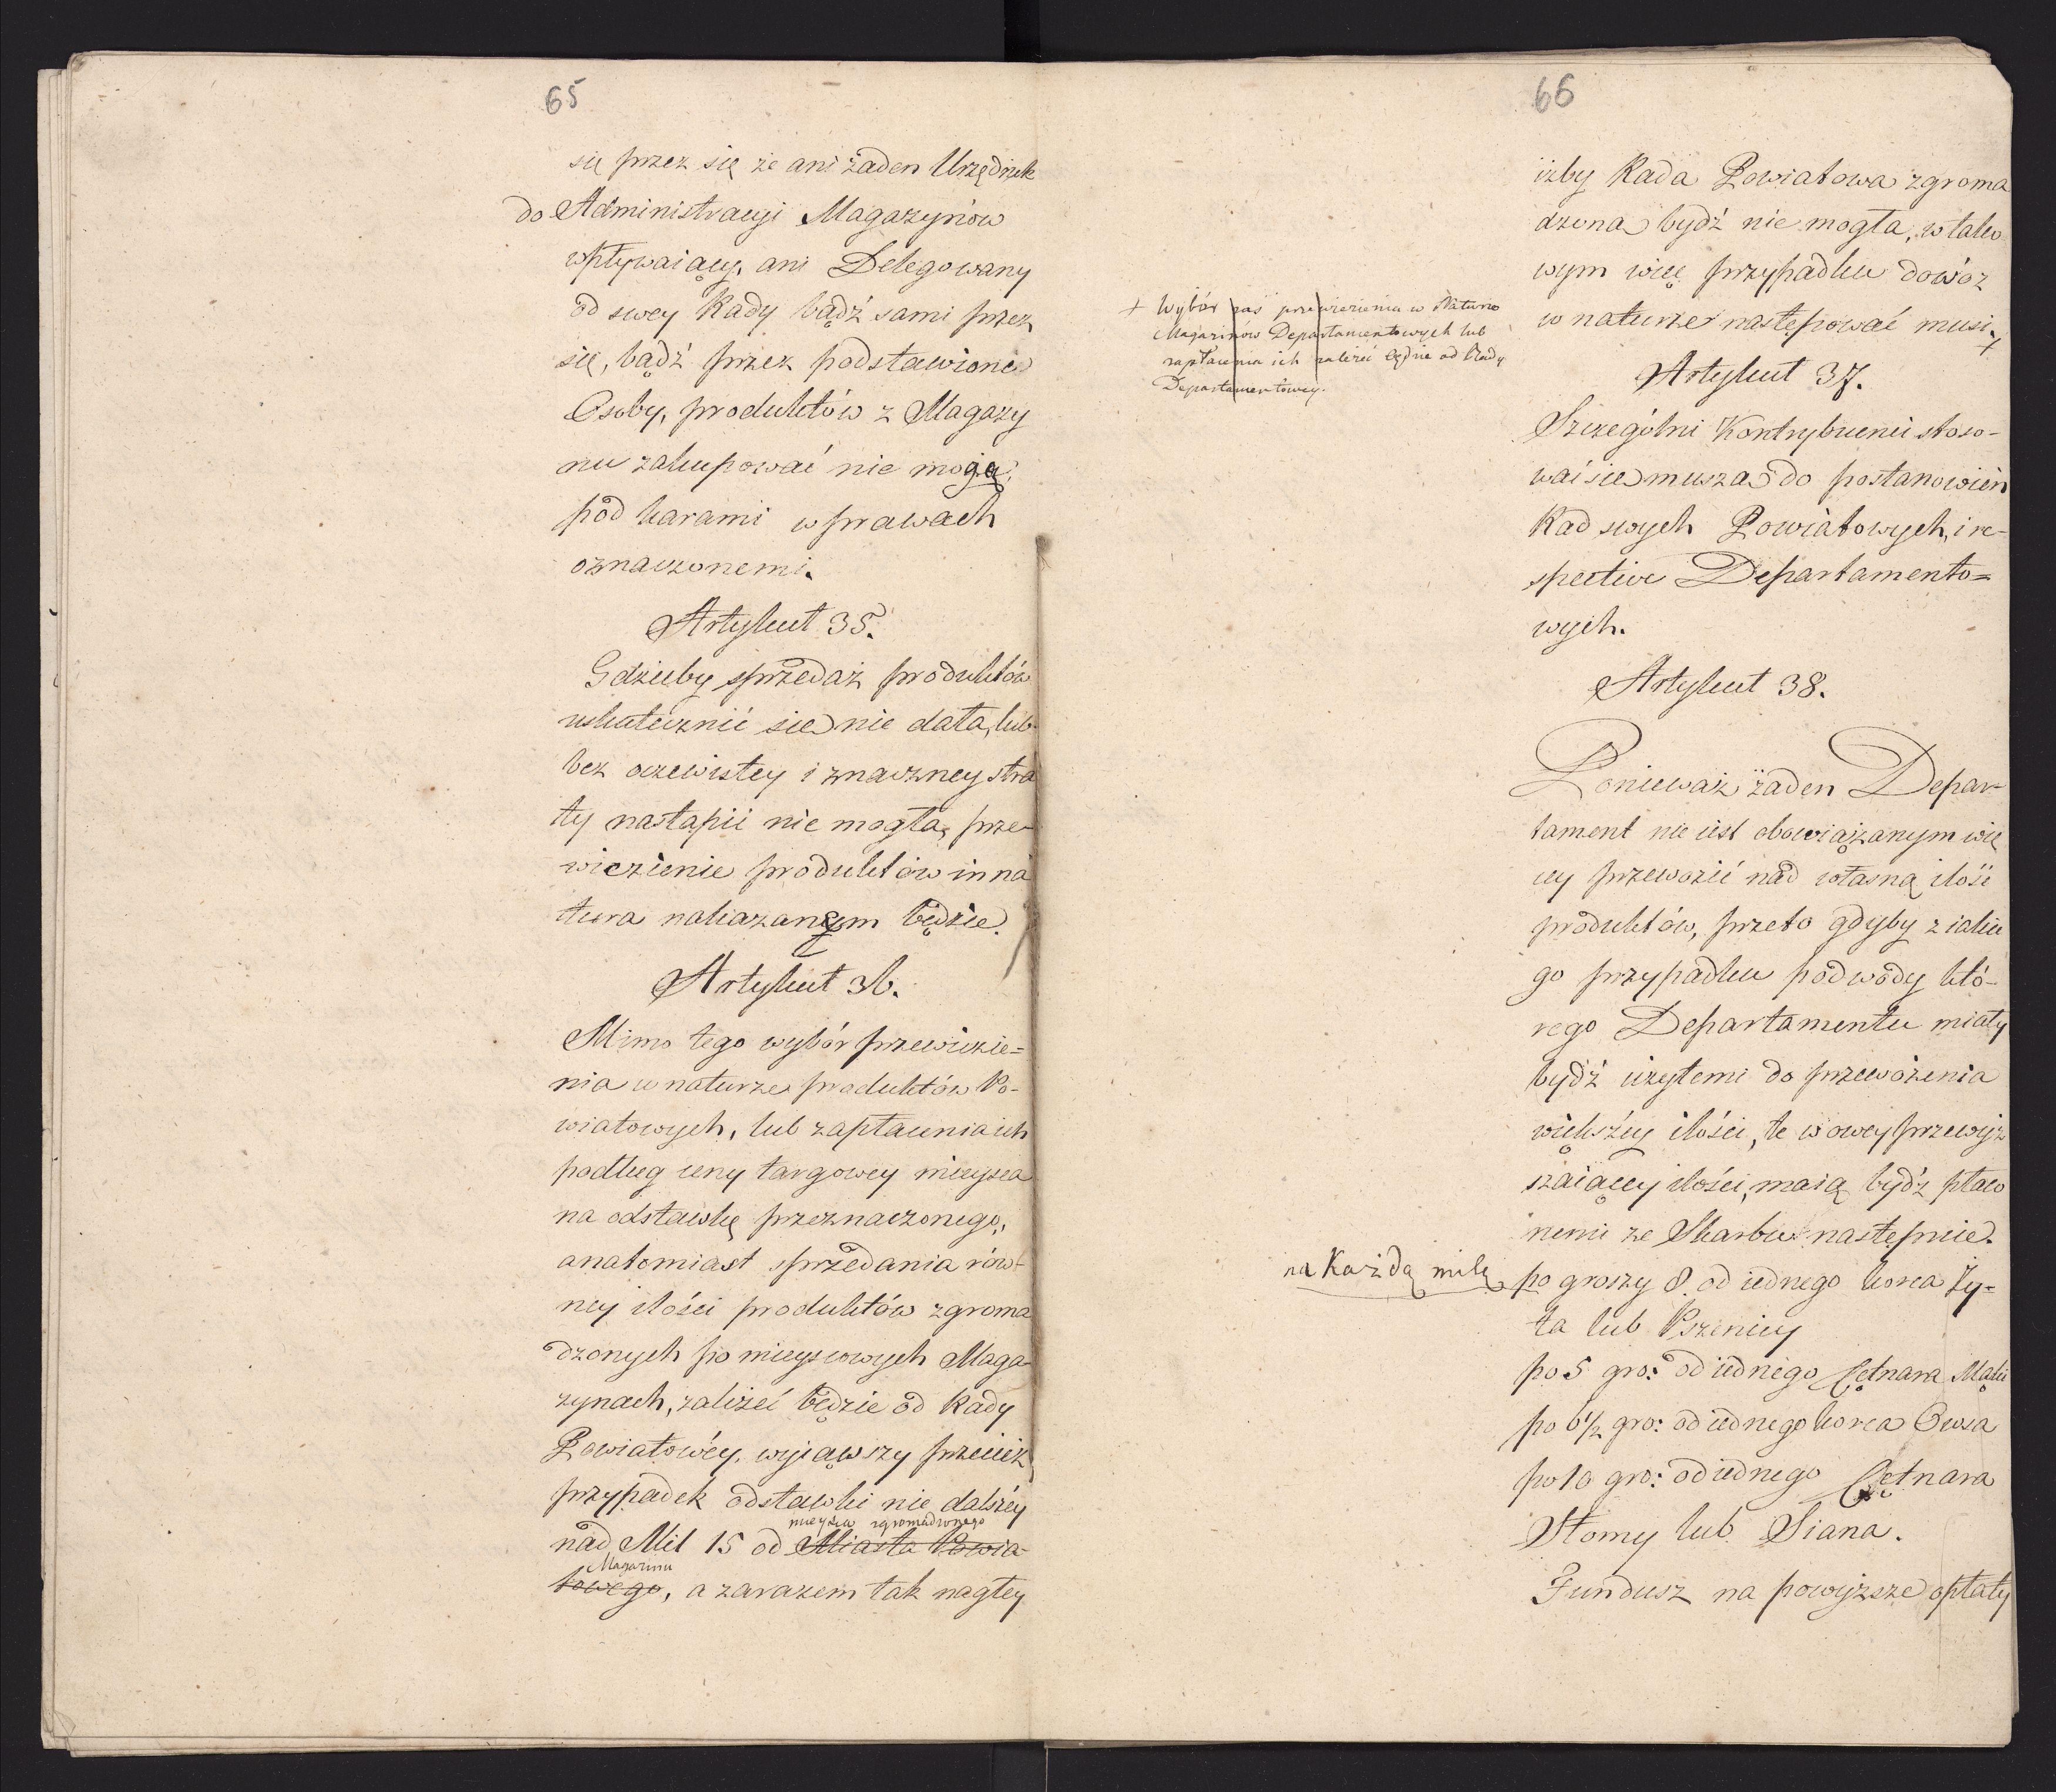 65
się przez się że ani żaden Urzędnik
do Administracyi Magazynów
wpływaiący, ani Delegowany
od swey Rady bądź sami przez
się, bądź przez podstawione
Osoby, produktów z Magazy
nu zakupować nie mogą,
pod karami w prawach
oznaczonemi.
Artykuł 35.
Gdzieby sprzedaż produktów
uskutecznić się nie dała, lub
bez oczewistey i znaczney stra
ty nastąpić nie mogła, prze-
wiezienie produktów in na
tura nakazanym będzie.
Artykuł 36.
Mimo tego wybór przewiezie=
nia w naturze produktów Po-
wiatowych, lub zapłacenia ich
podług ceny targowey mieysca
na odstawkę przeznaczonego,
a natomiast sprzedania rów-
ney ilości produktów zgroma
dzonych po mieyscowych Maga-
zynach, zależeć będzie od Rady
Powiatowéy, wyiąwszy przecież
przypadek odstawki nie dalszéy
mieysca zgromadzonego
nad Mil 15 od Miasta Powia-
Magazinu
towego, a zarazem tak nagłey
66
iżby Rada Powiatowa zgroma
dzona bydź nie mogła, w tako
wym więc przypadku dowóz
w naturze następować musi. +
+ Wybór zaś przewiezienia w Naturze
Magazinow Departamentowych lub
zapłacenia ich zależeć będzie od Rady
Departamentowey.
Artykuł 37.
Szczególni Kontrybuenci stoso-
wać się muszą do postanowień
Rad swych Powiatowych, i re-
spective Departamento=
wych.
Artykuł 38.
Ponieważ żaden Depar-
tament nie iest obowiązanym wię
cey przewozić nad własną ilość
produktów, przeto gdyby z iakie
go przypadku podwody któ-
rego Departamentu miały
bydź użytemi do przewożenia
większéy ilości, te w owey przewyż
szaiącey ilości, maią bydź płaco
nemi ze Skarbu następnie.
na Każdą milę
po groszy 8. od iednego korca Ży=
ta lub Pszenicy
po 5 gro: od iednego Cetnara Mąki
po 6 1/2 gro: od iednego korca Owsa
po 10 gro: od iednego Cetnara
Słomy lub Siana.
Fundusz na powyższe opłaty